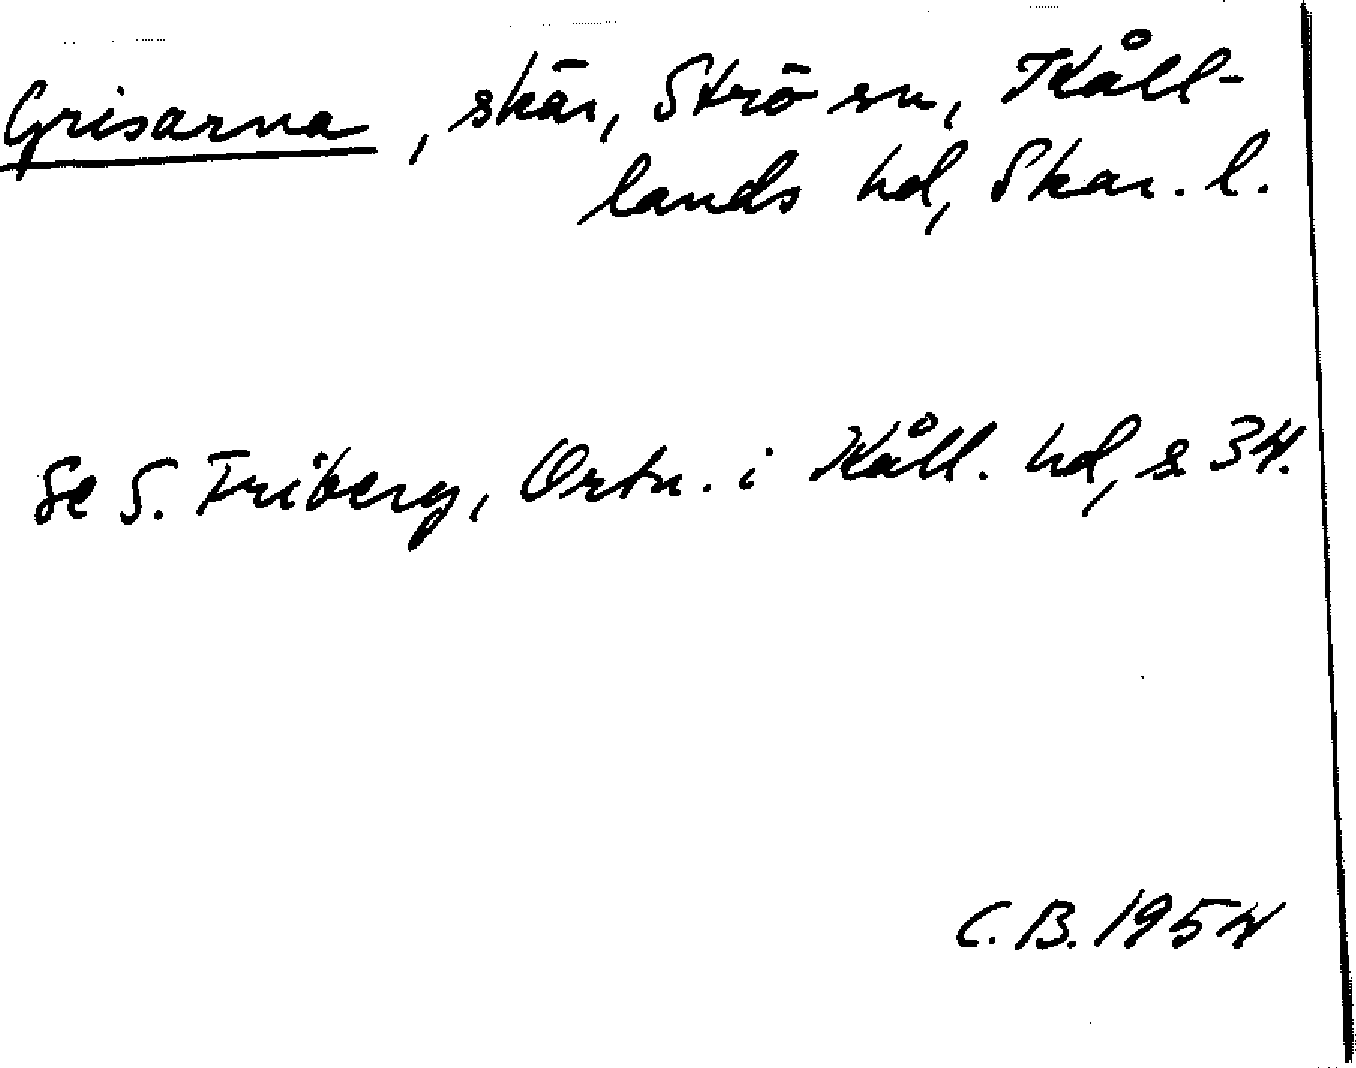 Grisarna, skär, Strö sn, Kåll-
lands hd, Skar. l.
Se S. Friberg, Ortn. i Kåll. hd, s 34.
C. B. 1954